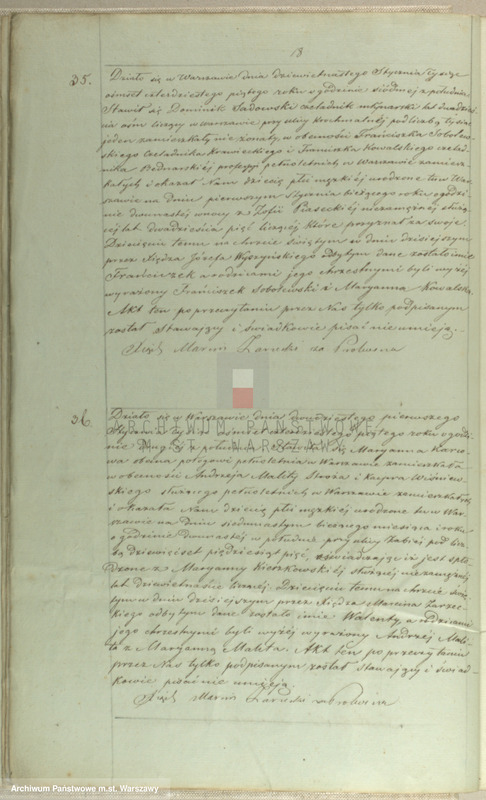 13
35.
Działo się w Warszawie dnia dziewiętnastego Stycznia tysiąc
ośmset czterdziestego piątego roku o godzinie siódmej z południa
Stawił się Dominik Sadowski czeladnik młynarski lat dwadzieś
cia ośm liczący w Warszawie przy ulicy Krochmalnej pod liczbą tysiąc
jeden zamieszkały nieżonaty, w obecności Franciszka Sobolew
skiego Czeladnika Krawieckiego i Franciszka Kowalskiego czela
dnika Bednarskiej professyi pełnoletnich w Warszawie zamiesz
kałych i okazał Nam dziecię płci męzkiéj urodzone tu w War
szawie na dniu pierwszym Stycznia bieżącego roku o godzi
nie dwunastéj w nocy z Zofii Piaseckiéj niezamężnéj służą
céj lat dwadzieścia pięć liczącéj które przyznał za swoje.
Dziecięciu temu na chrzcie świętym w dniu dzisiejszym
przez Xiędza Józefa Wyszyńskiego odbytym dane zostało imie
Franciszek a rodzicami jego chrzestnymi byli wyżéj
wyrażony Franciszek Sobolewski i Maryanna Kowalska.
Akt ten po przeczytaniu przez Nas tylko podpisanym
został stawający i świadkowie pisać nie umieją.
Xiądz Marcin Zarucki za Proboszcza
36.
Działo się w Warszawie dnia dwudziestego pierwszego
Stycznia tysiąc ośmset czterdziestego piątego roku o godzi
nie drugiéj z południa Stawiła się Maryanna Karo
wa obecna połogowi pełnoletnia w Warszawie zamieszkała
w obecności Andrzeja Malety Stróża i Kacpra Wiśniew
skiego służącego pełnoletnich w Warszawie zamieszkałych
i okazała Nam dziecię płci męzkiéj urodzone tu w War
szawie na dniu siedmnastym bieżącego miesiąca i roku
o godzinie dwunastéj w południe przy ulicy Żabiéj pod licz
bą dziewięćset pięćdziesiąt pięć, oświadczając iż jest spło
dzone z Maryanny Kierzkowskiéj służącéj niezamężnéj
lat dziewiętnaście liczącéj. Dziecięciu temu na chrzcie świę
tym w dniu dzisiejszym przez Xiędza Marcina Zaruc
kiego odbytym dane zostało imie Walenty, a rodzicami
jego chrzestnymi byli wyżéj wyrażony Andrzéj Male
ta i Maryanna Maleta. Akt ten po przeczytaniu
przez Nas tylko podpisanym został stawający i świad
kowie pisać nie umieją.
Xiądz Marcin Zarucki za Proboszcza
ARCHIWUM PAŃSTWOWE
M.ST. WARSZAWY
Archiwum Państwowe m.st. Warszawy